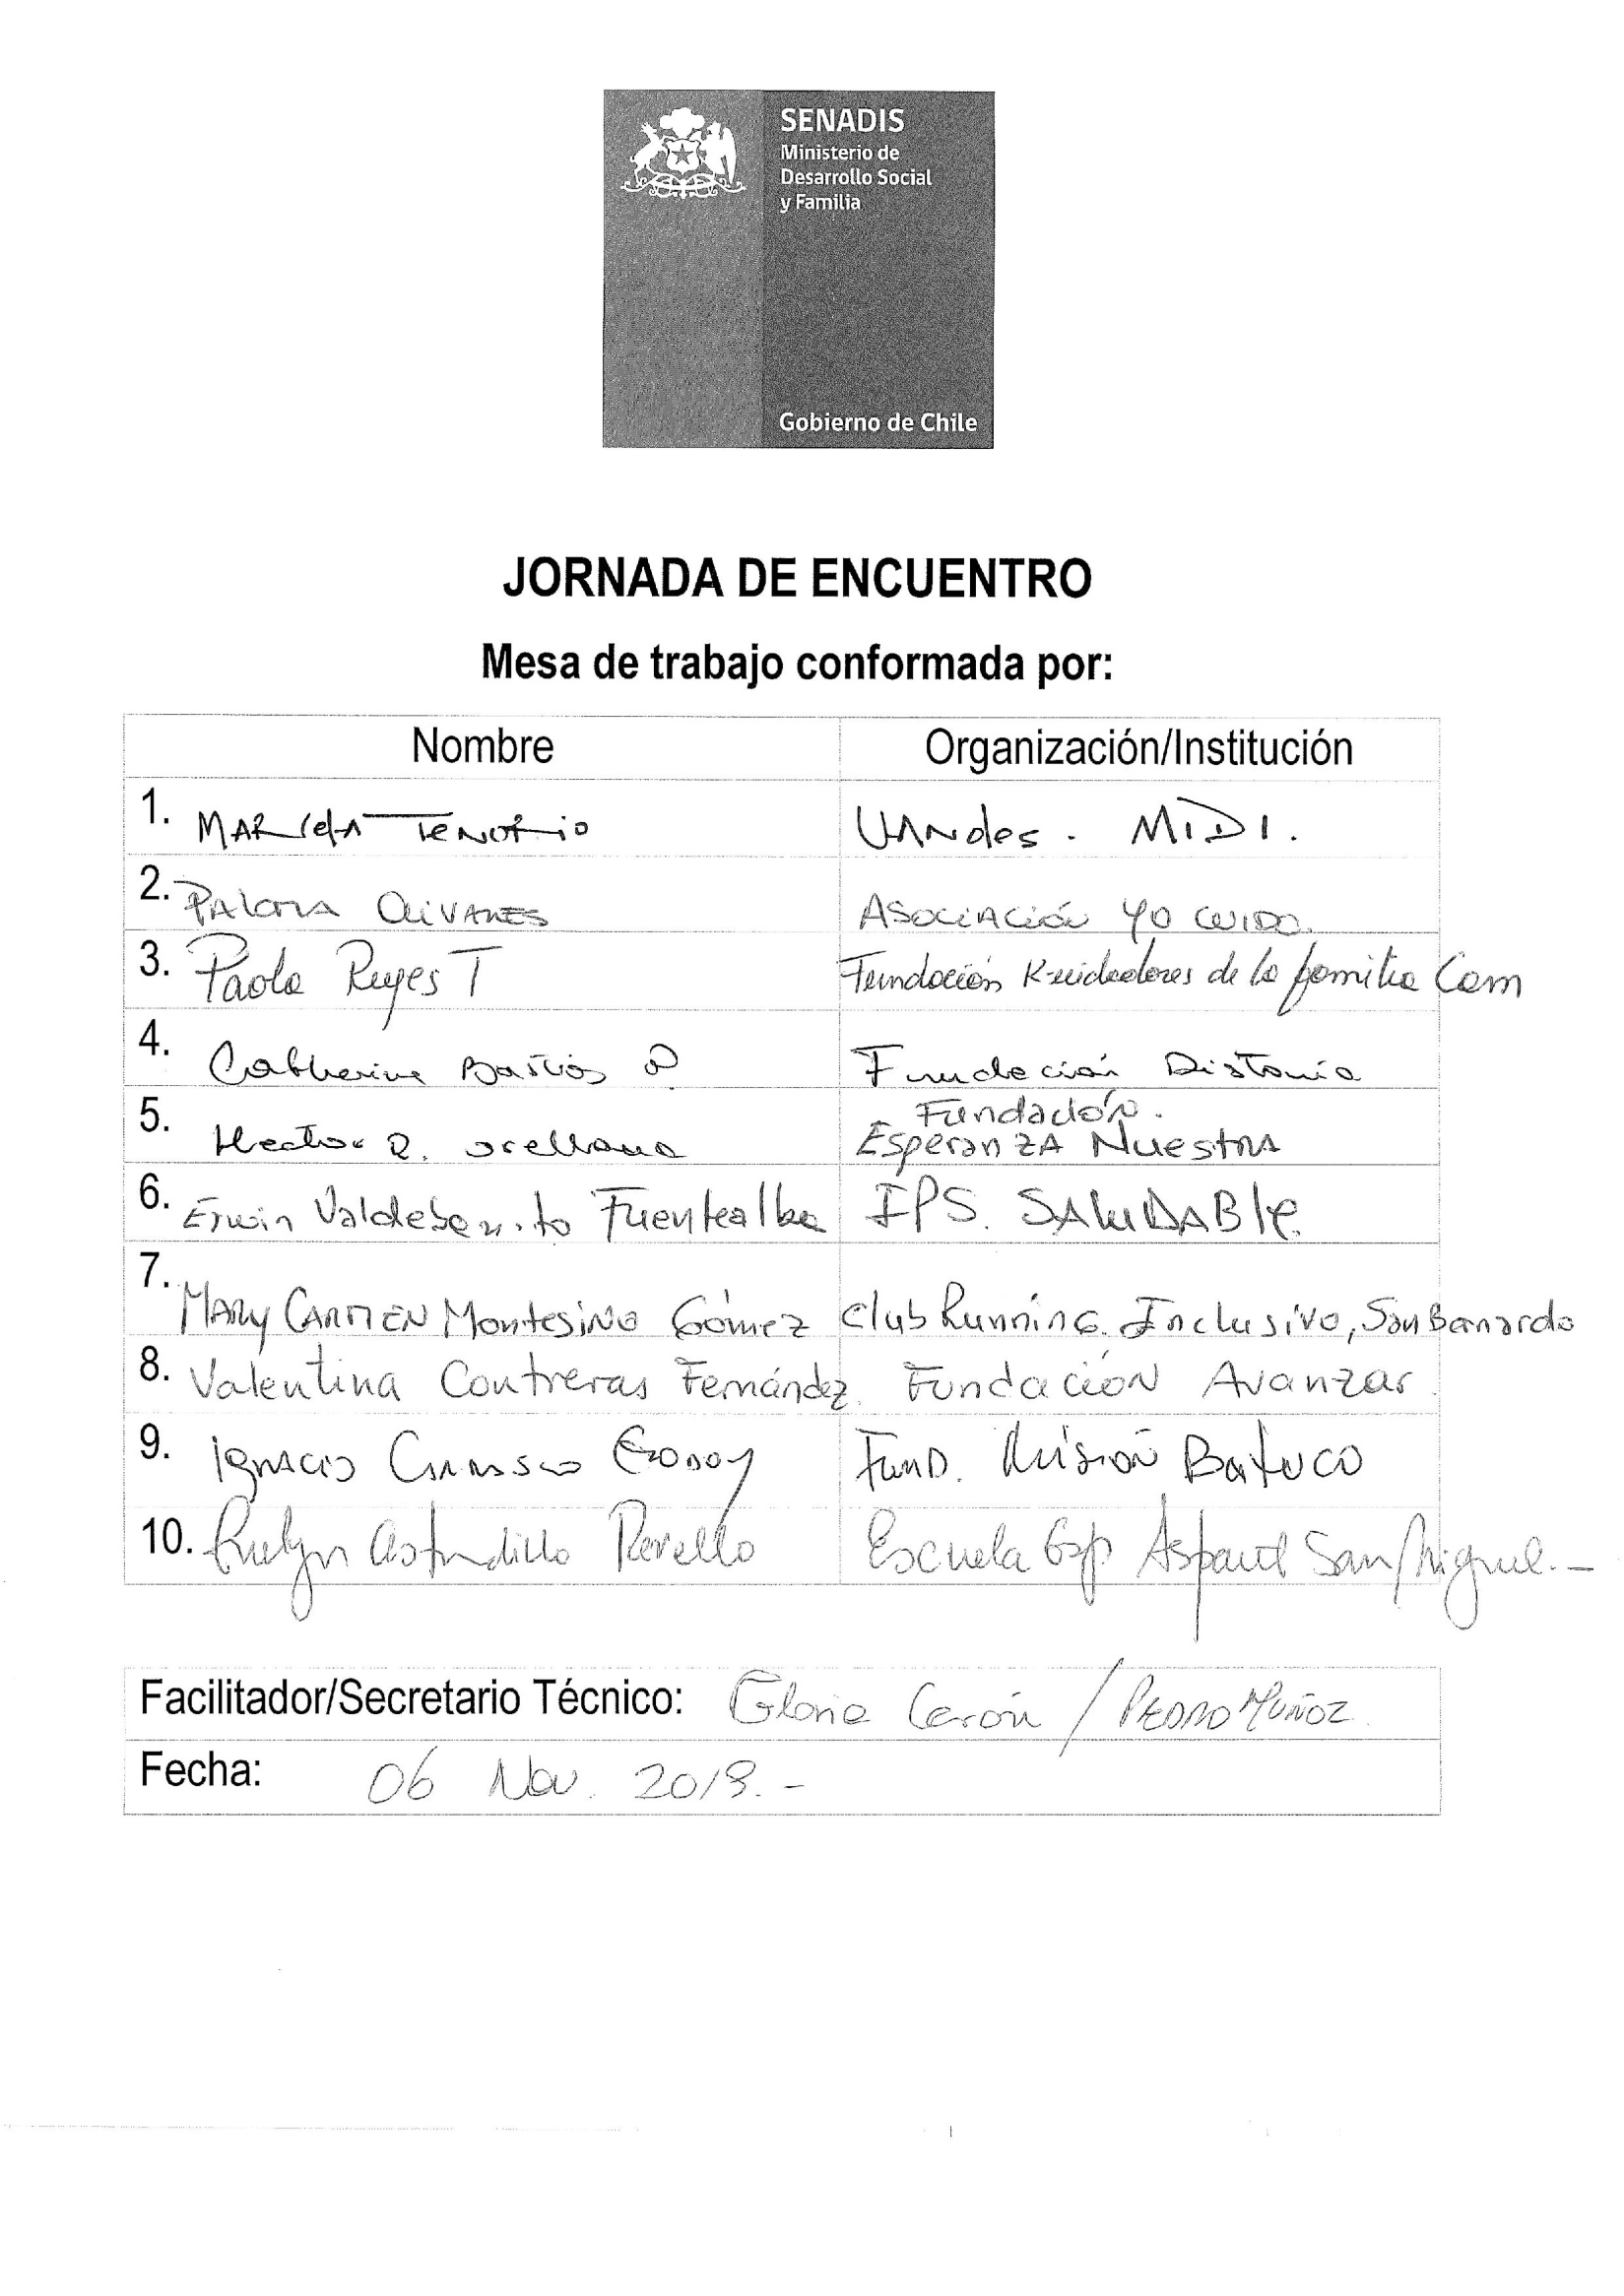 SENADIS
Ministerio de
Desarrollo Social
y Familia
Gobierno de Chile
JORNADA DE ENCUENTRO
Mesa de trabajo conformada por:
Nombre Organización/Institución
1. MARIELA TENORIO UANdes. MIDI.
2. PALOMA OLIVARES ASOCIACIÓN YO CUIDO.
3. Paola Reyes T Fundación Kuidadores de la familia Cam
4. Catherine Bastías P. Fundación Distonía
5. Hector R. orellana Fundación.
Esperanza Nuestra
6. Erwin Valdebenito Fuentealba IPS. SALUDABle.
7. MARY CARMEN Montesino Gómez Club Running Inclusivo, San Bernardo
8. Valentina Contreras Fernández. Fundación Avanzar.
9. Ignacio Carrasco Godoy Fund. Misión Batuco
10. Evelyn Astudillo Ravello Escuela Esp Aspaut San Miguel.-
Facilitador/Secretario Técnico: Gloria Cerón / PEDRO MUÑOZ
Fecha: 06 Nov. 2019.-